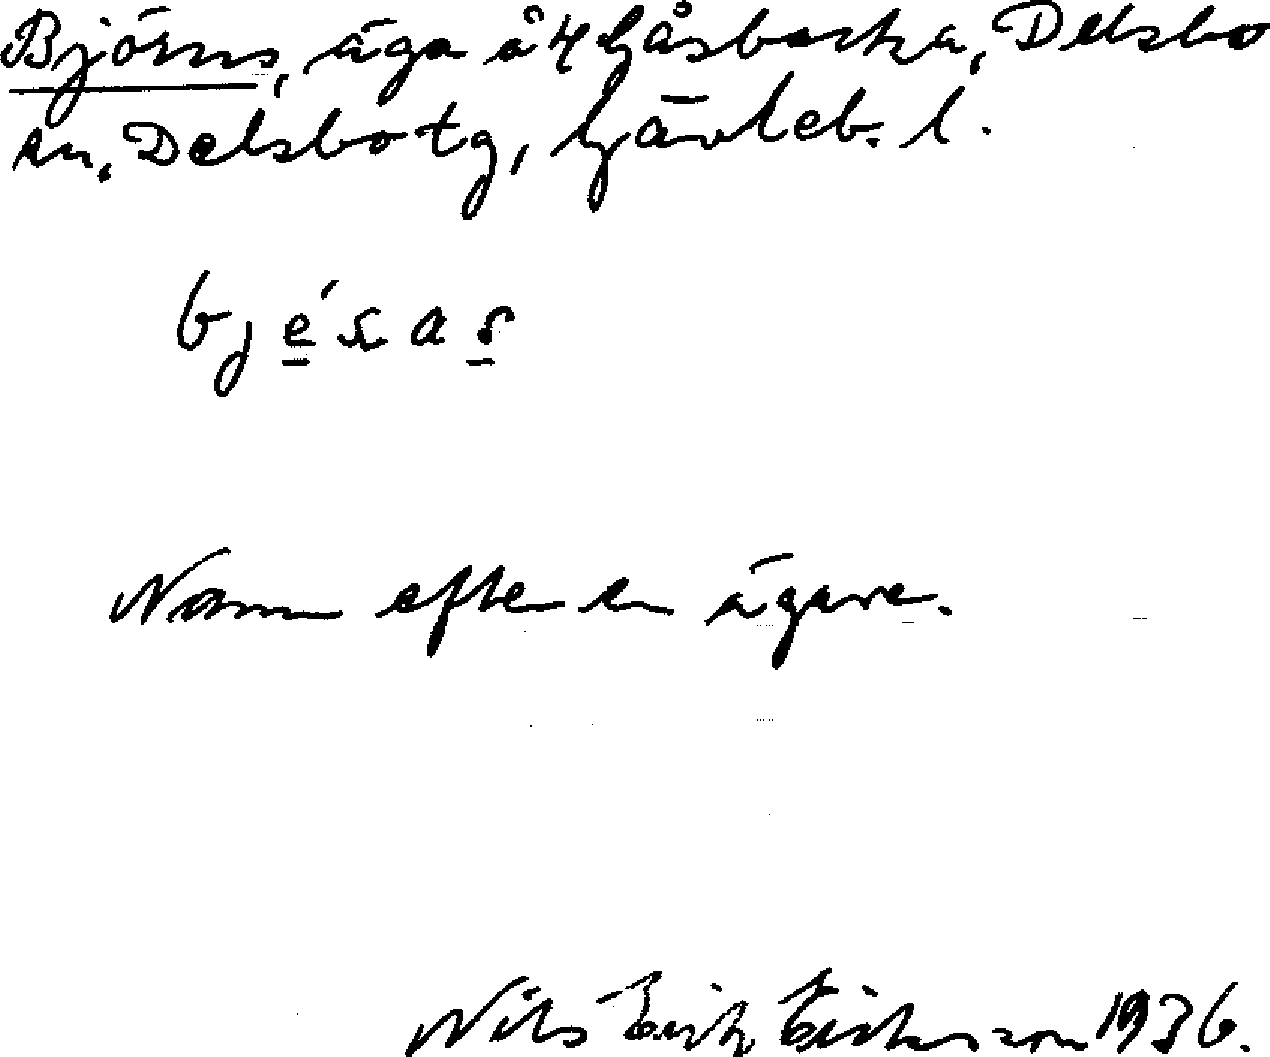 Björns, äga å 4 Gåsbacka, Delsbo
sn, Delsbo tg, Gävleb. l.
Namn efter en ägare.
Nils Erik Eriksson 1936.